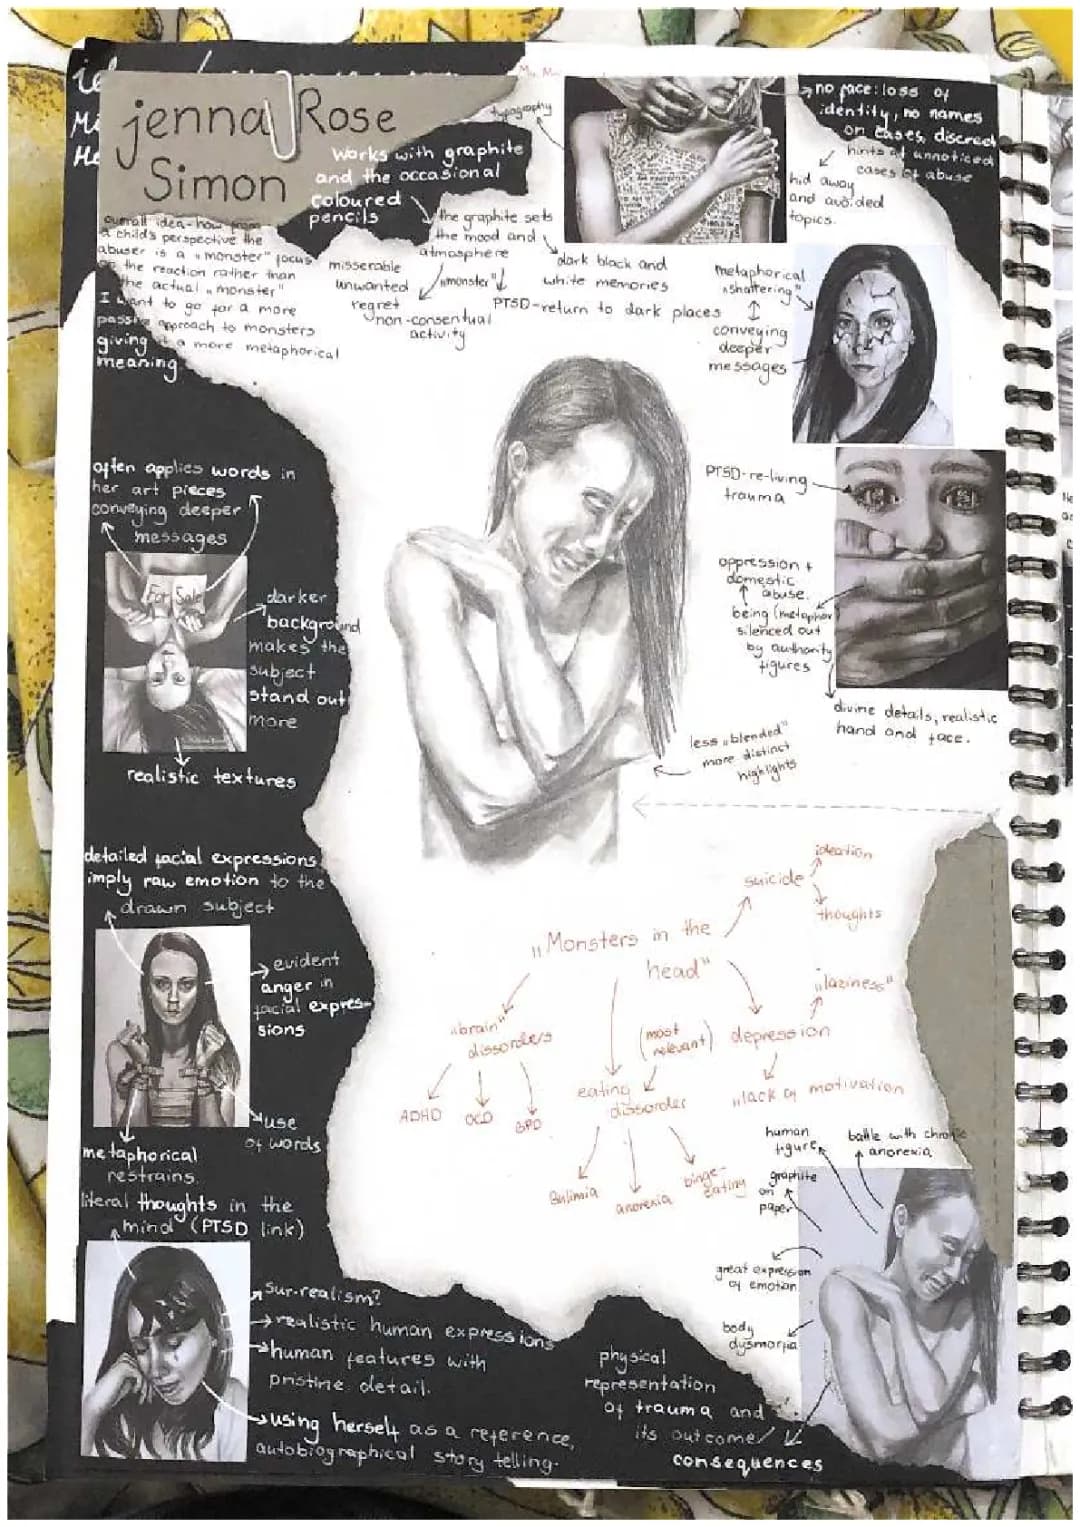 jenna Rose
Simon
Works with graphite
and the occasional
coloured
pencils
typography
no face: loss of
identity, no names
on cases, discreet
hints of unnoticed
cases of abuse
hid away
and avoided
topics.
overall idea - how from
a child's perspective the
abuser is a „monster" focus
on the reaction rather than
the actual „monster"
I want to go for a more
passive approach to monsters
giving it a more metaphorical
meaning.
the graphite sets
the mood and
atmosphere
misserable
unwanted
regret
„monster"
non-consentual
activity
dark black and
white memories
PTSD-return to dark places
metaphorical
„shattering"
conveying
deeper
messages
often applies words in
her art pieces
conveying deeper
messages
For Sale
darker
background
makes the
subject
stand out
more
realistic textures
PTSD-re-living
trauma
oppression +
domestic
abuse.
being (metaphor
silenced out
by authority
figures
divine details, realistic
hand and face.
less „blended"
more distinct
highlights
detailed facial expressions
imply raw emotion to the
drawn subject
evident
anger in
facial expres-
sions
use
of words
metaphorical
restrains.
„Monsters in the
head"
suicide
ideation
thoughts
„brain"
dissorders
ADHD
OCD
BPD
(most
relevant)
eating
dissorder
Bulimia
anorexia
binge-
eating
depression
„laziness"
„lack of motivation
literal thoughts in the
mind (PTSD link)
sur-realism?
realistic human expressions
human features with
pristine detail.
using herself as a reference,
autobiographical story telling.
human
figure
battle with chronic
anorexia
graphite
on
paper
great expression
of emotion
body
dysmorfia
physical
representation
of trauma and
its outcome/
consequences